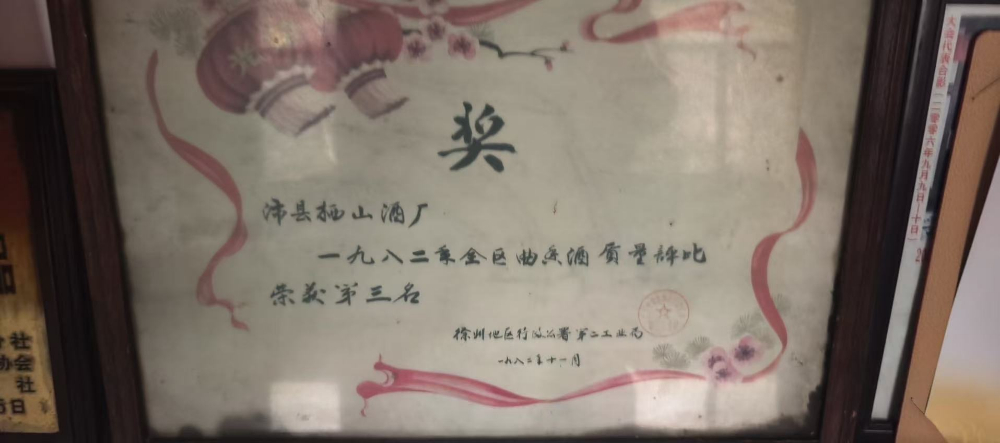 奖
沛县栖山酒厂
一九八二年全区曲香酒质量评比
荣获第三名
徐州地区行政公署第二工业局
一九八二年十一月
大会代表合影 二零零六年九月九日—十日
社
协会
社
日